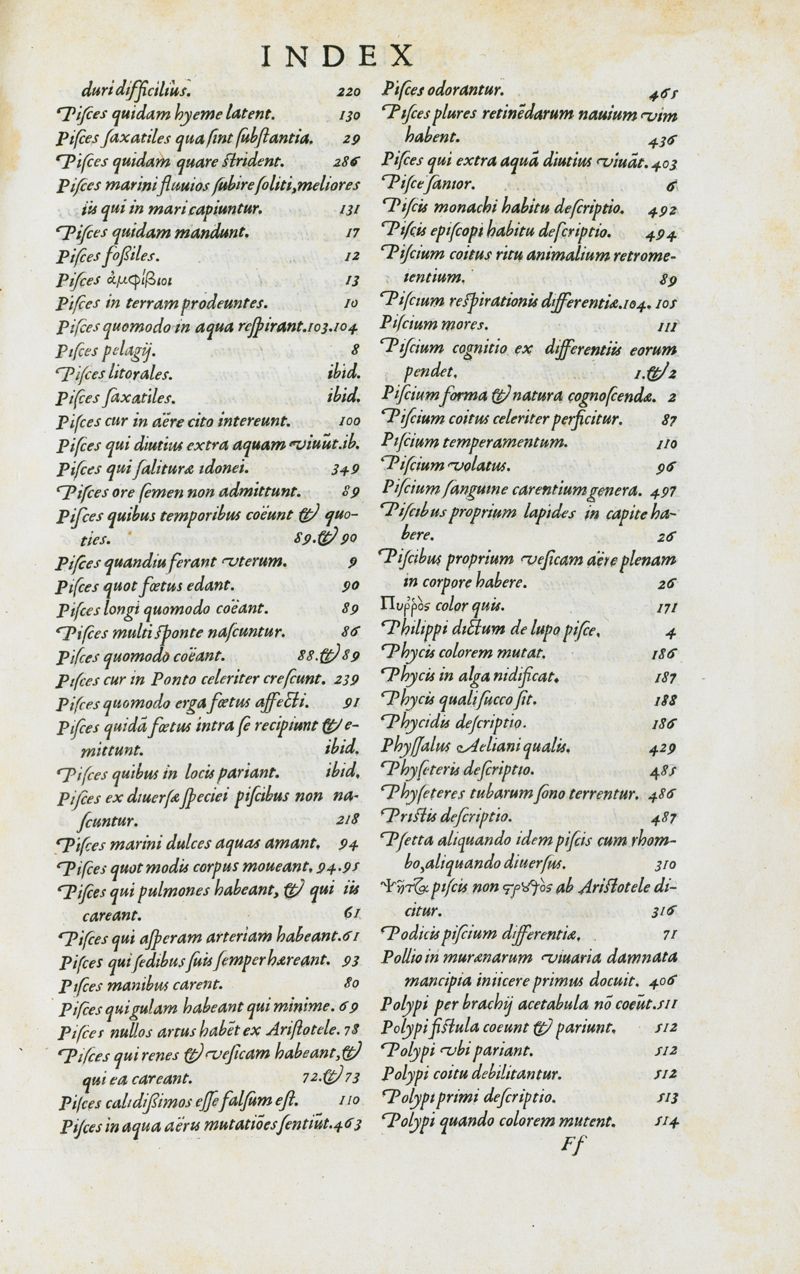 INDEX
duri difficiliùs. 220
Piſces quidam hyeme latent. 130
Piſces ſaxatiles qua ſint ſubſtantia. 29
Piſces quidam quare ſtrident. 286
Piſces marini fluuios ſubire ſoliti, meliores
iis qui in mari capiuntur. 131
Piſces quidam mandunt. 17
Piſces foßiles. 12
Piſces ἀμφίβιοι 13
Piſces in terram prodeuntes. 10
Piſces quomodo in aqua reſpirant. 103.104
Piſces pelagij. 8
Piſces litorales. ibid.
Piſces ſaxatiles. ibid.
Piſces cur in aëre cito intereunt. 100
Piſces qui diutius extra aquam viuũt. ib.
Piſces qui ſalituræ idonei. 349
Piſces ore ſemen non admittunt. 89
Piſces quibus temporibus coëunt & quo-
ties. 89.& 90
Piſces quandiu ferant vterum. 9
Piſces quot fœtus edant. 90
Piſces longi quomodo coëant. 89
Piſces multi ſponte naſcuntur. 86
Piſces quomodo coëant. 88.& 89
Piſces cur in Ponto celeriter creſcunt. 239
Piſces quomodo erga fœtus affecti. 91
Piſces quidã fœtus intra ſe recipiunt & e-
mittunt. ibid.
Piſces quibus in locis pariant. ibid.
Piſces ex diuerſæ ſpeciei piſcibus non na-
ſcuntur. 218
Piſces marini dulces aquas amant. 94
Piſces quot modis corpus moueant. 94.95
Piſces qui pulmones habeant, & qui iis
careant. 61
Piſces qui aſperam arteriam habeant. 61
Piſces qui ſedibus ſuis ſemper hæreant. 93
Piſces manibus carent. 80
Piſces qui gulam habeant qui minime. 69
Piſces nullos artus habẽt ex Ariſtotele. 78
Piſces qui renes & veſicam habeant, &
qui ea careant. 72.& 73
Piſces calidißimos eſſe falſum eſt. 110
Piſces in aqua aëris mutatiões ſentiũt. 463
Piſces odorantur. 465
Piſces plures retinẽdarum nauium vim
habent. 436
Piſces qui extra aquã diutius viuãt. 403
Piſce ſanior. 6
Piſcis monachi habitu deſcriptio. 492
Piſcis epiſcopi habitu deſcriptio. 494
Piſcium coitus ritu animalium retrome-
ientium. 89
Piſcium reſpirationis differentiæ. 104. 105
Piſcium mores. 111
Piſcium cognitio ex differentiis eorum
pendet. 1.& 2
Piſcium forma & natura cognoſcenda. 2
Piſcium coitus celeriter perficitur. 87
Piſcium temperamentum. 110
Piſcium volatus. 96
Piſcium ſanguine carentium genera. 497
Piſcibus proprium lapides in capite ha-
bere. 26
Piſcibus proprium veſicam aëre plenam
in corpore habere. 26
Πυῤῥὸς color quis. 171
Philippi dictum de lupo piſce. 4
Phycis colorem mutat. 186
Phycis in alga nidificat. 187
Phycis quali ſucco ſit. 188
Phycidis deſcriptio. 186
Phyſſalus Aeliani qualis. 429
Phyſeteris deſcriptio. 485
Phyſeteres tubarum ſono terrentur. 486
Priſtis deſcriptio. 487
Pſetta aliquando idem piſcis cum rhom-
bo, aliquando diuerſus. 310
Ψῆττα piſcis non ab Ariſtotele di-
citur. 316
Podicis piſcium differentiæ. 71
Pollio in murænarum viuaria damnata
mancipia iniicere primus docuit. 406
Polypi per brachij acetabula nõ coeũt. 511
Polypi fiſtula coeunt & pariunt. 512
Polypi vbi pariant. 512
Polypi coitu debilitantur. 512
Polypi primi deſcriptio. 513
Polypi quando colorem mutent. 514
Ff